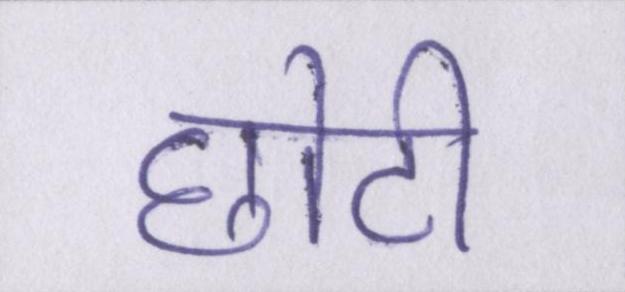 छोटी